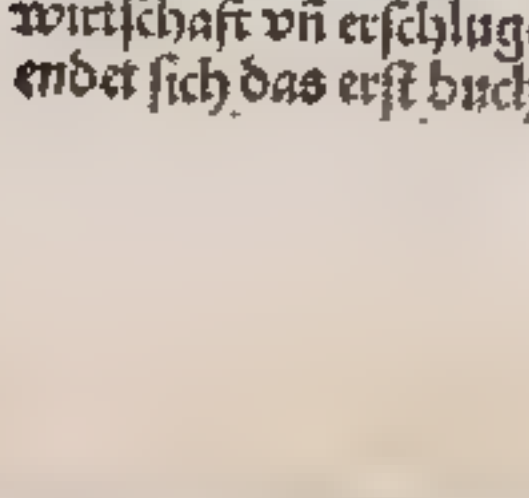 wirtſchafft vñ erſchlug
endet ſich das erſt buch